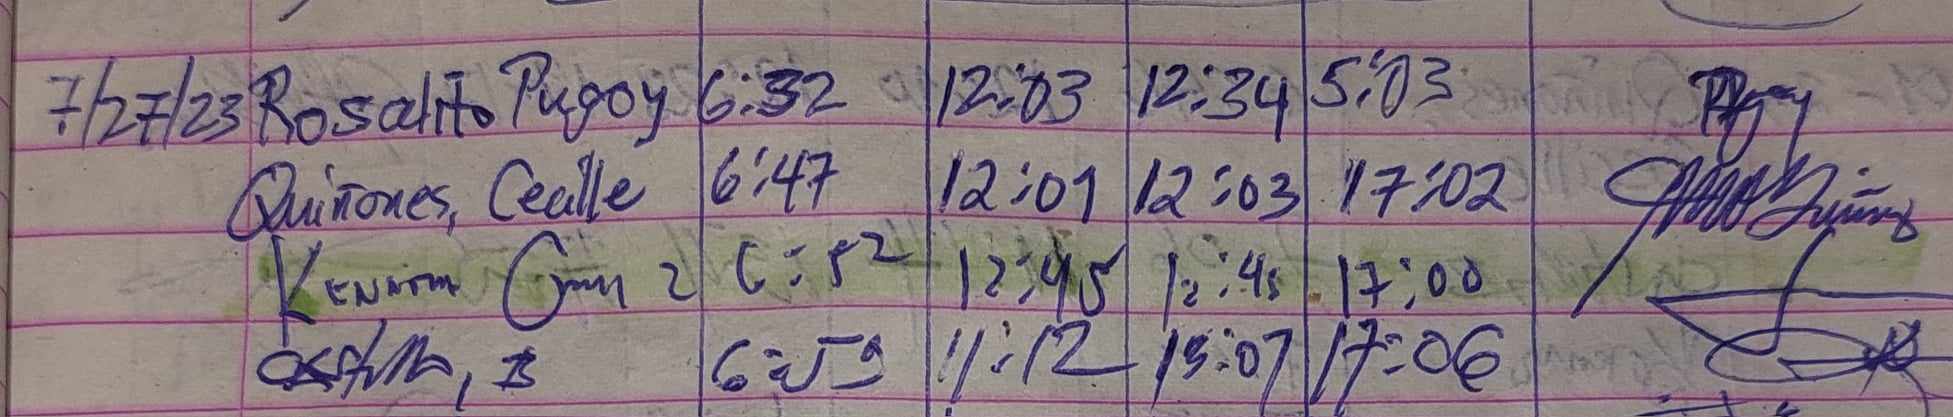 7/27/23 Rosalito Pugoy 6:32 12:03 12:34 5:03 Pugoy
Quiñones, Cecille 6:47 12:01 12:03 17:02
6:52 12:45 12:45 17:00
6:59 11:12 13:07 17:06